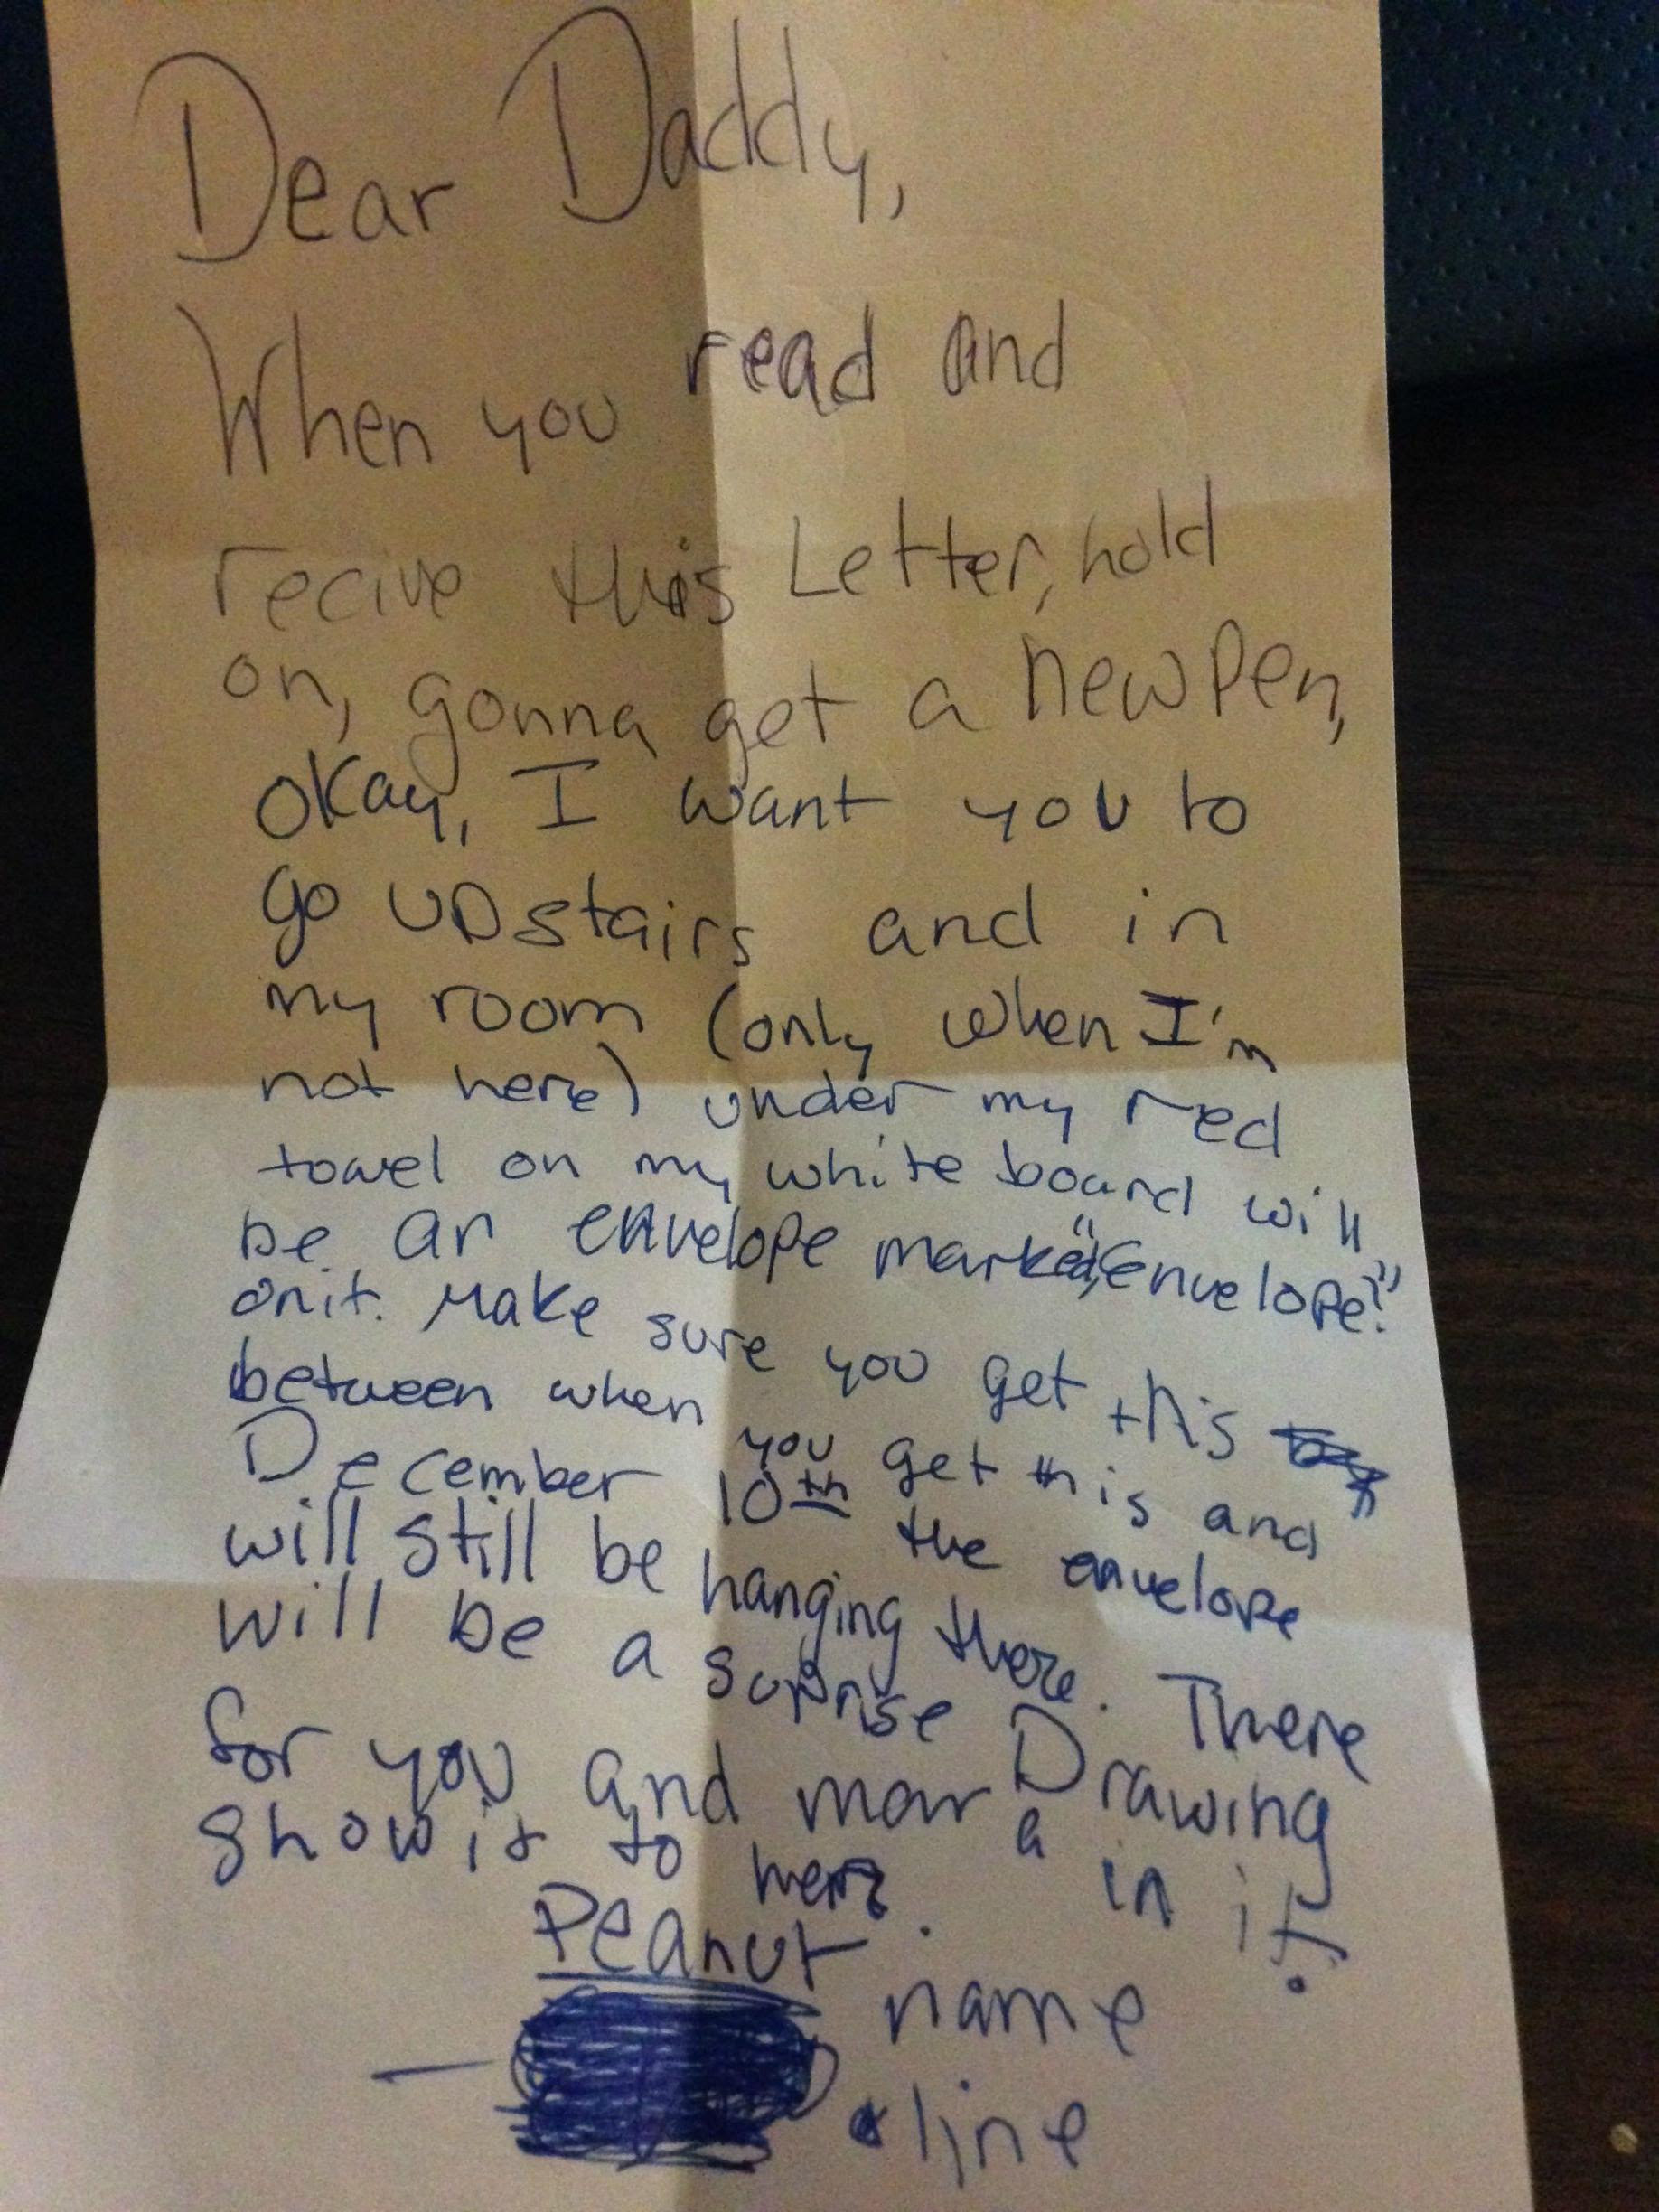 Dear Daddy,
When you read and
recive this Letter, hold
on, gonna get a new Pen,
okay, I want you to
go upstairs and in
my room (only when I'm
not here) under my red
towel on my white board will
be an envelope marked, "envelope"
on it. Make sure you get this
between when you get this and
December 10th the envelope
will still be hanging there. There
will be a suprise Drawing
for you and mom a in it.
show it to here.
Peanut
name
line